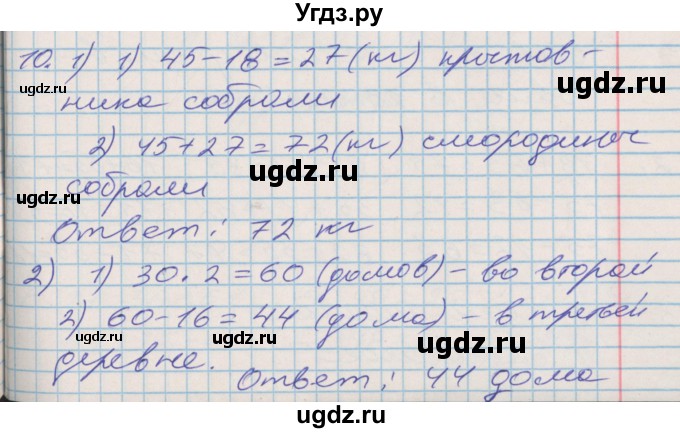 Угдз.ру
10. 1) 1) 45-18=27(кг) крыжов-
ника собрали
2) 45+27=72(кг) смородины
собрали
Ответ: 72 кг
2) 1) 30·2=60 (домов) - во второй
2) 60-16=44 (дома) - в третьей
деревне.
Ответ: 44 дома
ugdz.ru
ugdz.ru
ugdz.ru
ugdz.ru
ugdz.ru
ugdz.ru
ugdz.ru
ugdz.ru
ugdz.ru